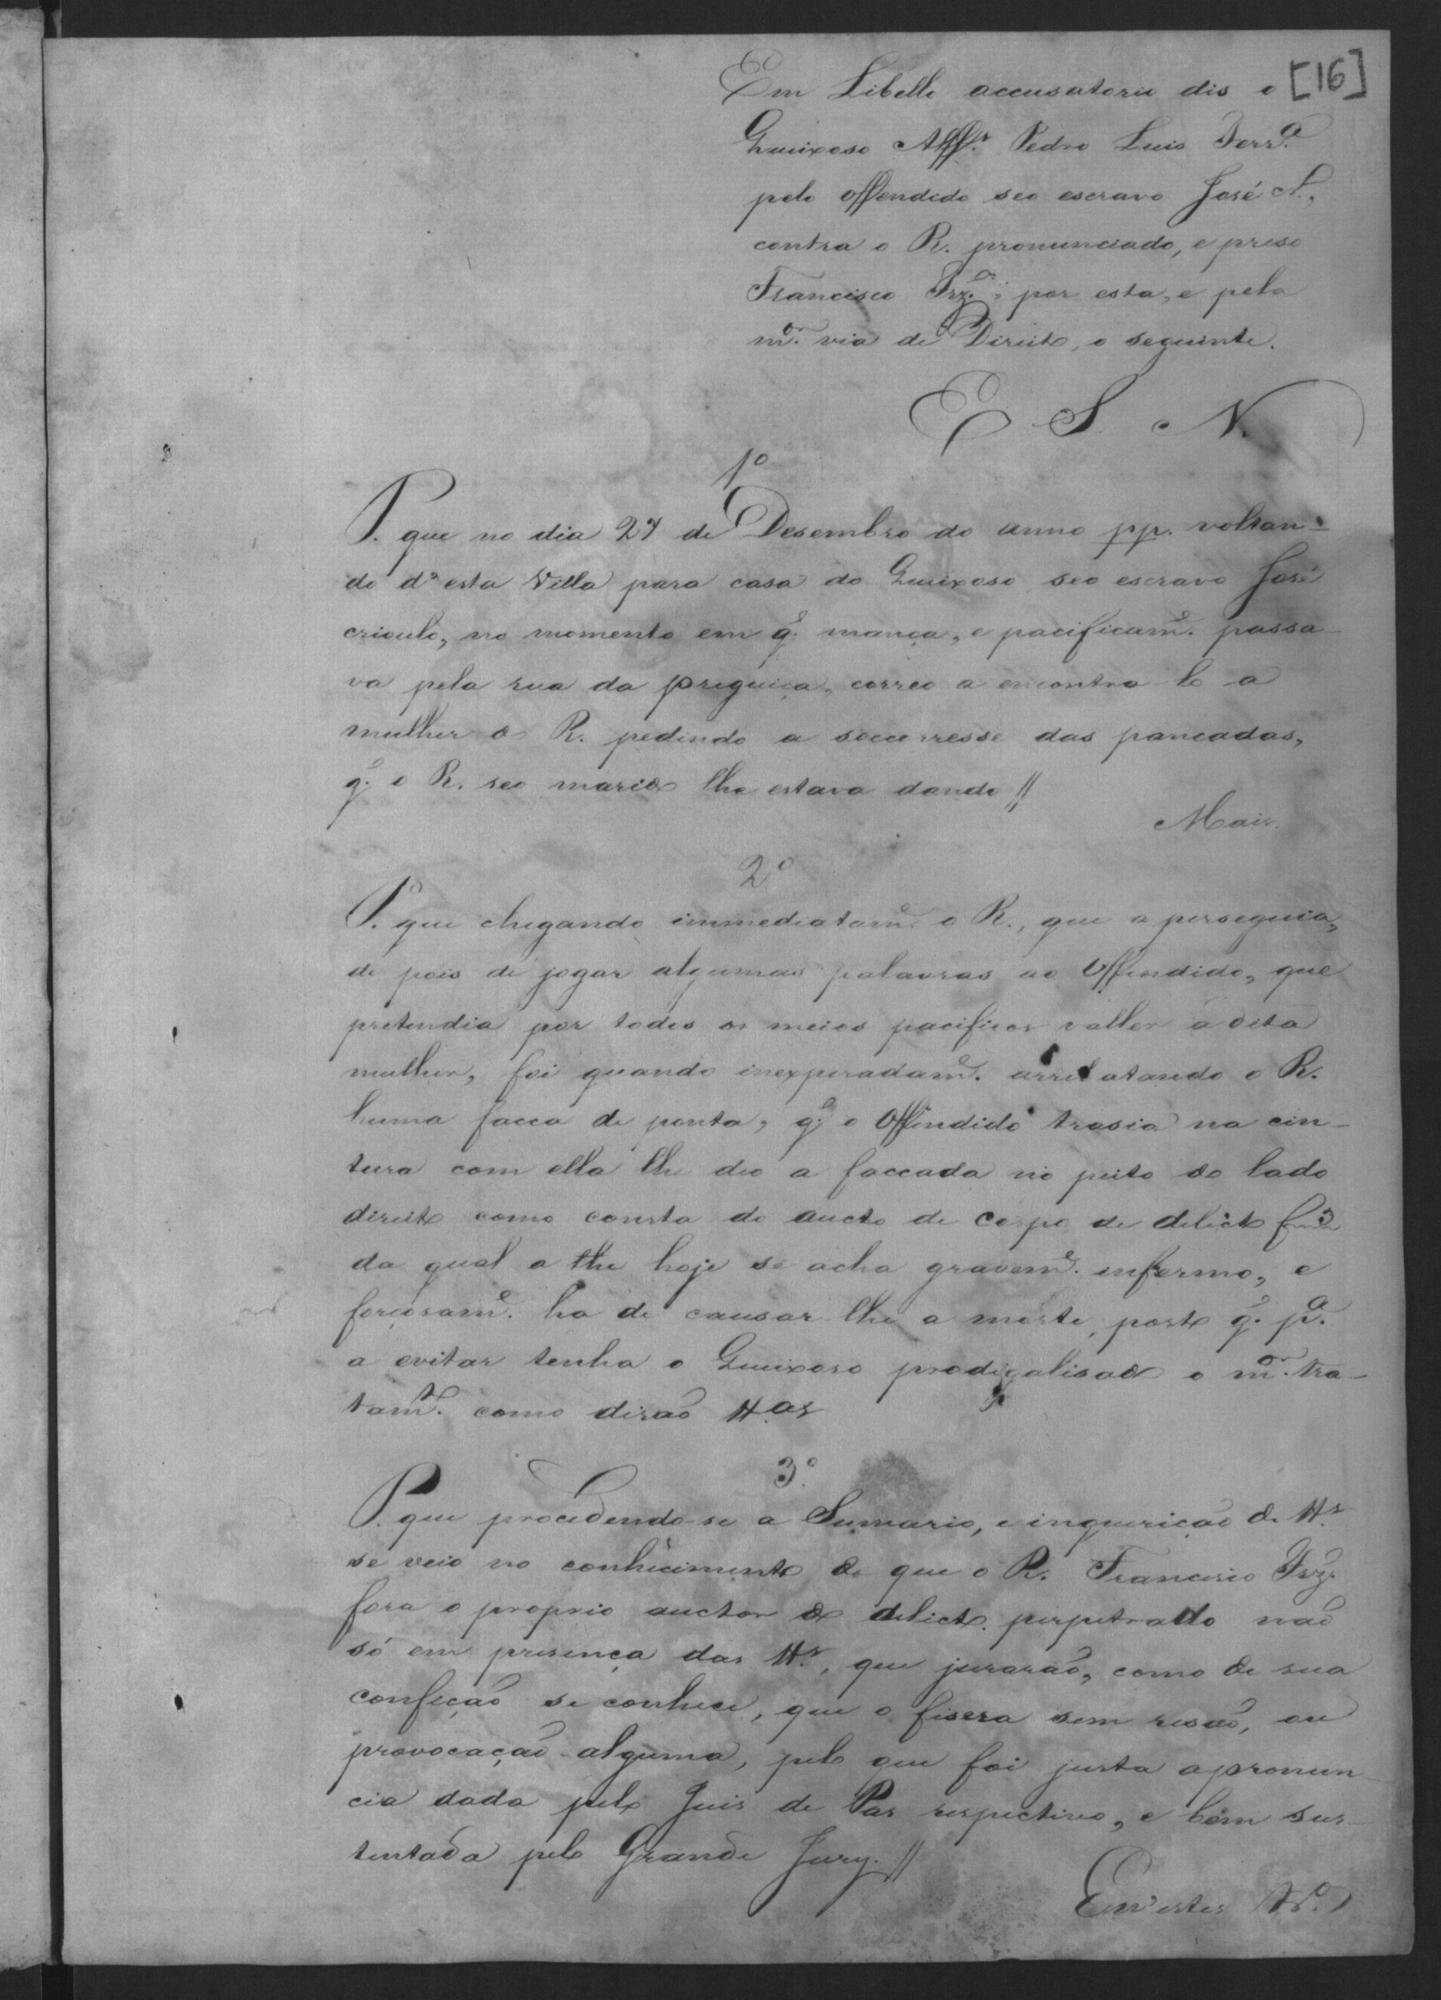 [16]
Em Libello accusatorio dis o
Queixoso Alff.s Pedro Luis Ferr.a
pelo offendido seo escravo José C.,
contra o R. pronunciado, e preso
Francisco Frz.; por esta, e pela
m.or via de Direito, o seguinte.
E S. N.
1º
P. que no dia 27 de Desembro do anno pp. voltan-
do d'esta Villa para casa do Queixoso seo escravo José
crioulo, no momento em q.e mança, e pacificam.e passa-
va pela rua da preguiça, correo a encontra-lo a
mulher do R. pedindo a soccorresse das pancadas,
q.e o R. seo marido lhe estava dando //
Mais
2º
P. que chegando immediatam.e o R., que a perseguia,
de pois de jogar algumas palavras ao Offendido, que
pretendia por todos os meios pacificos valler a dita
mulher, foi quando inexperadam.e arrebatando o R.
huma facca de ponta, q.e o Offendido trasia na cin-
tura com ella lhe deo a faccada no peito do lado
direito como consta do aucto de corpo de delicto f 3
da qual a the hoje se acha gravem.e infermo, e
forçosam.e ha de causar lhe a morte, posto q.e p.a
a evitar tenha o Queixoso prodigalisado o m.or tra-
tam.to como dirão tt.as
3º
P. que procedendo-se a Sumario, e inquerição de tt.s
se veio no conhicimento de que o R. Francisco Frz.
fora o proprio auctor do delicto perpetrado não
só em presença das tt.s, que jurarão, como de sua
confição se conhece, que o fisera sem resão, ou
provocação alguma, pelo que foi justa a pronun-
cia dada pelo Juis de Pas respectivo, e bem sus-
tentada pelo Grande Jury. //
Em estes